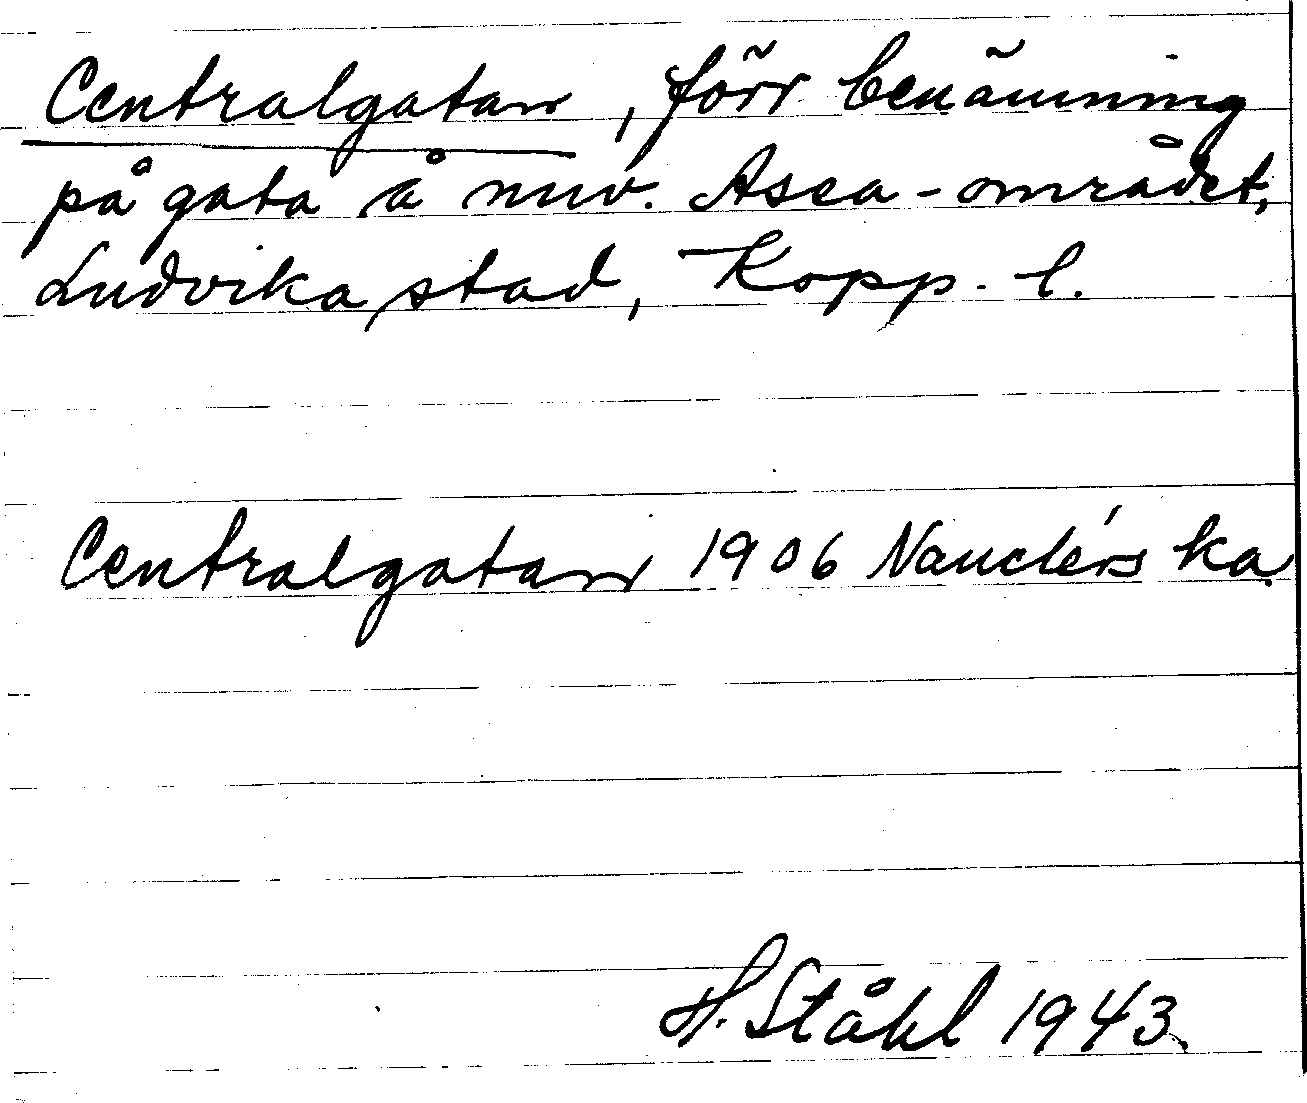 Centralgatan, förr benämning
på gata å nuv. Asea-området,
Ludvika stad, Kopp. l.
Centralgatan 1906 Nauclérs ka.
H. Ståhl 1943.